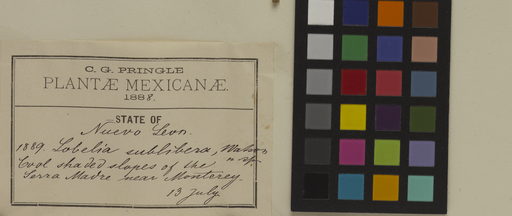 C. G. PRINGLE
PLANTÆ MEXICANÆ.
1888.
STATE OF
Nuevo Leon.
1889. Lobelia sublibera, Watson
n. sp.
Cool shaded slopes of the
Serra Madre near Monterey.
13 July.